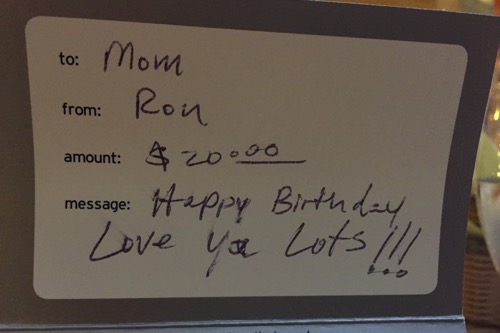 to: Mom
from: Ron
amount: $20.00
message: Happy Birthday
Love Ya Lots!!!